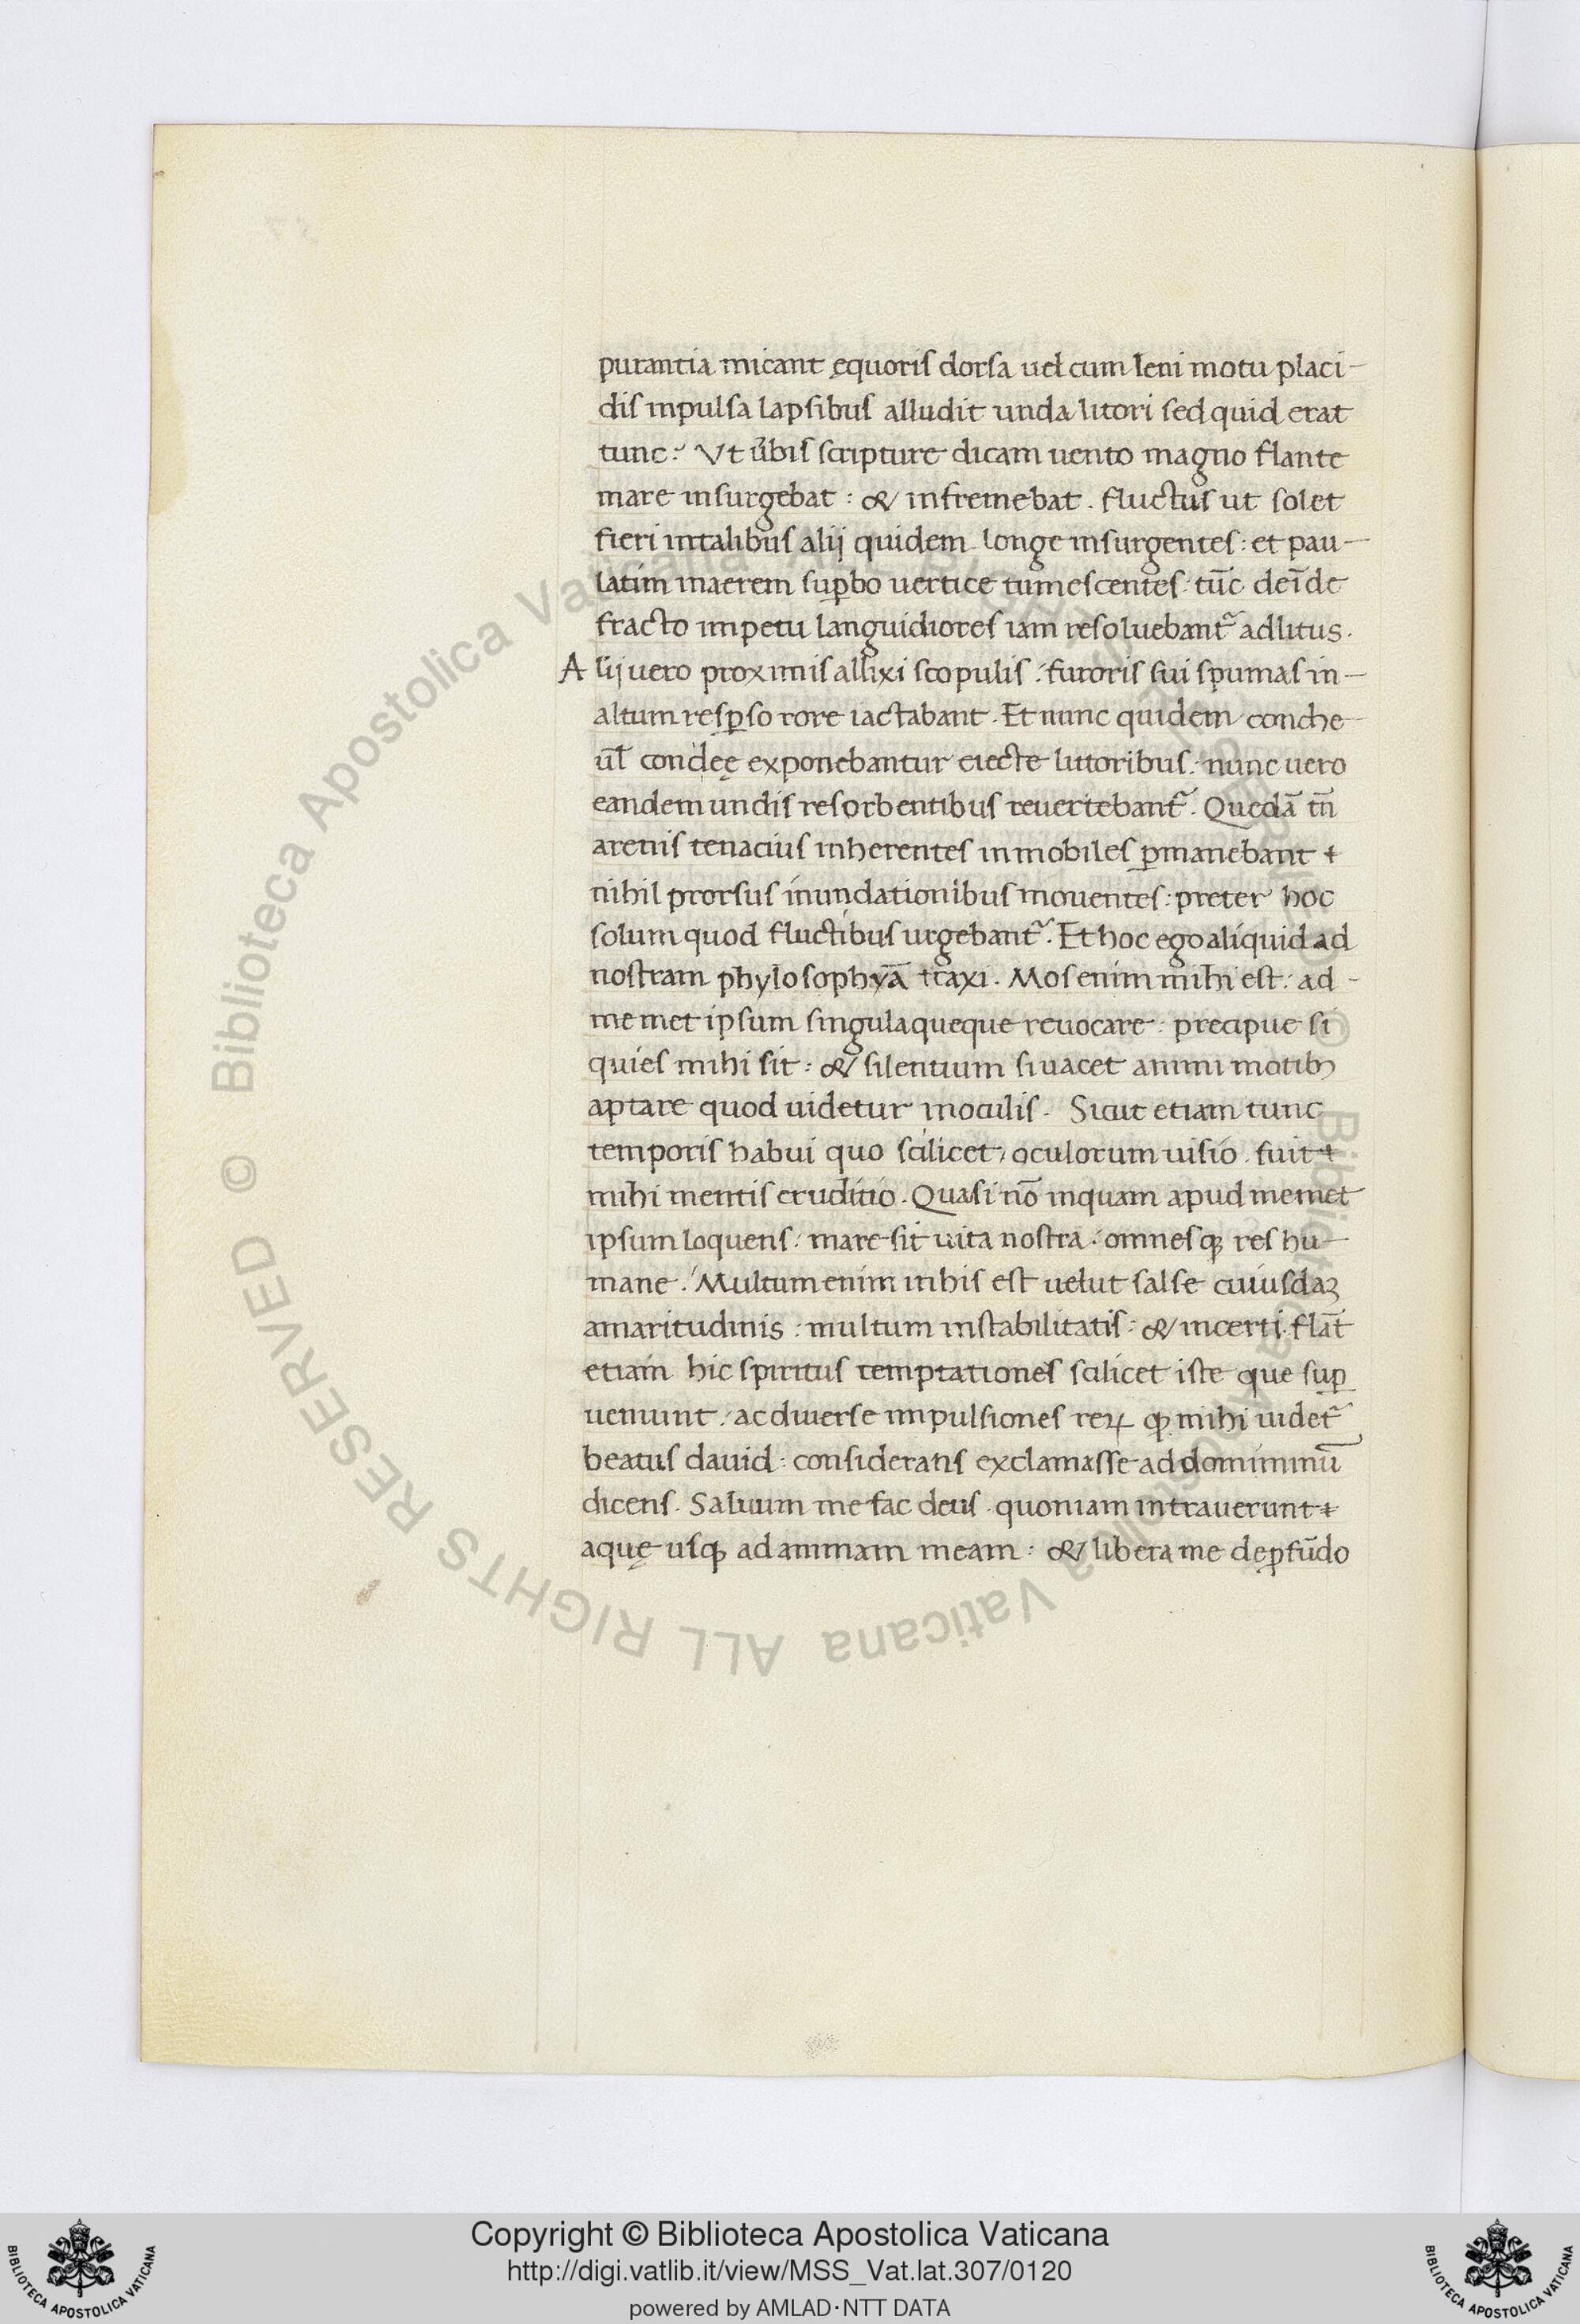 purantia micant ęquoris dorsa uel cum leni motu placi-
dis inpulsa lapsibus alludit unda litori sed quid erat
tunc? Vt ūbis scripture dicam uento magno flante
mare insurgebat : & infremebat . fluctus ut solet
fieri intalibus alij quidem longe insurgentes : et pau-
latim inaerem sup̱bo uertice tumescentes : tūc deīde
fracto impetu languidiores iam resoluebant᷑ adlitus .
Alij uero proximis allixi scopulis : furoris sui spumas in-
altum resp̱so rore iactabant . Et nunc quidem conche
ūl condeę exponebantur eiecte littoribus : nunc uero
eandem undis resorbentibus reuertebant᷑ . Quedā tn̄
arenis tenacius inherentes inmobiles p̱manebant
nihil prorsus inundationibus mouentes : preter hoc
solum quod fluctibus urgebant᷑ . Et hoc ego aliquid ad
nostram phylosophyā traxi . Mos enim mihi est : ad-
memet ipsum singula queque reuocare : precipue si
quies mihi sit : & silentium si uacet animi motibꝫ
aptare quod uidetur inoculis . Sicut etiam tunc
temporis habui quo scilicet oculorum uisio . fuit
mihi mentis eruditio . Quasi nō inquam apud memet
ipsum loquens : mare sit uita nostra : omnesqꝫ res hu-
mane . Multum enim inhis est uelut salse cuiusdaꝫ
amaritudinis : multum instabilitatis : & incerti . flāt
etiam hic spiritus temptationes scilicet iste que sup̱
ueniunt : ac diuerse impulsiones reꝝ qꝫ mihi uidet᷑
beatus dauid : considerans exclamasse ad dominmū
dicens . Saluum me fac deus . quoniam intrauerunt
aquę usqꝫ ad animam meam : & libera me dep̱fūdo
Copyright © Biblioteca Apostolica Vaticana
http://digi.vatlib.it/view/MSS_Vat.lat.307/0120
powered by AMLAD·NTT DATA
© Biblioteca Apostolica Vaticana ALL RIGHTS RESERVED
© Biblioteca Apostolica Vaticana ALL RIGHTS RESERVED
BIBLIOTECA APOSTOLICA VATICANA
BIBLIOTECA APOSTOLICA VATICANA